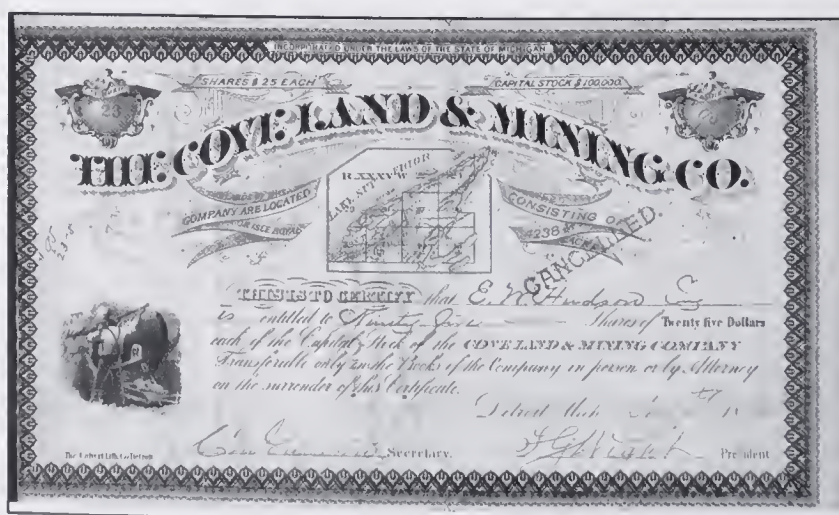 INCORPORATED UNDER THE LAWS OF THE STATE OF MICHIGAN
SHARES $25 EACH
CAPITAL STOCK $100,000.
23
THE COVE LAND & MINING CO.
R.XXXVW
LAKE SUPERIOR
COMPANY ARE LOCATED
ISLE ROYAL
CONSISTING OF
4238
ACRES
CANCELLED.
THIS IS TO CERTIFY that E. W. Hudson Esq
is entitled to Ninety five Shares of Twenty five Dollars
each of the Capital Stock of the COVE LAND & MINING COMPANY
Transferable only on the Books of the Company in person or by Attorney
on the surrender of this Certificate.
Detroit Mich
Secretary.
President